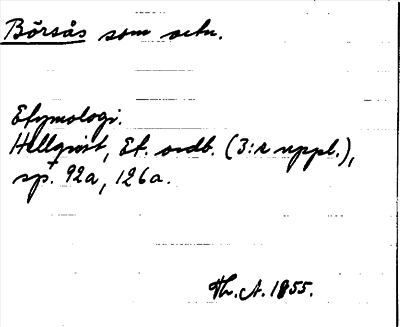 Börsås som ortn.
Etymologi.
Hellqvist, Et. ordb. (3:e uppl.),
sp. 92a, 126a.
Th. A. 1855.